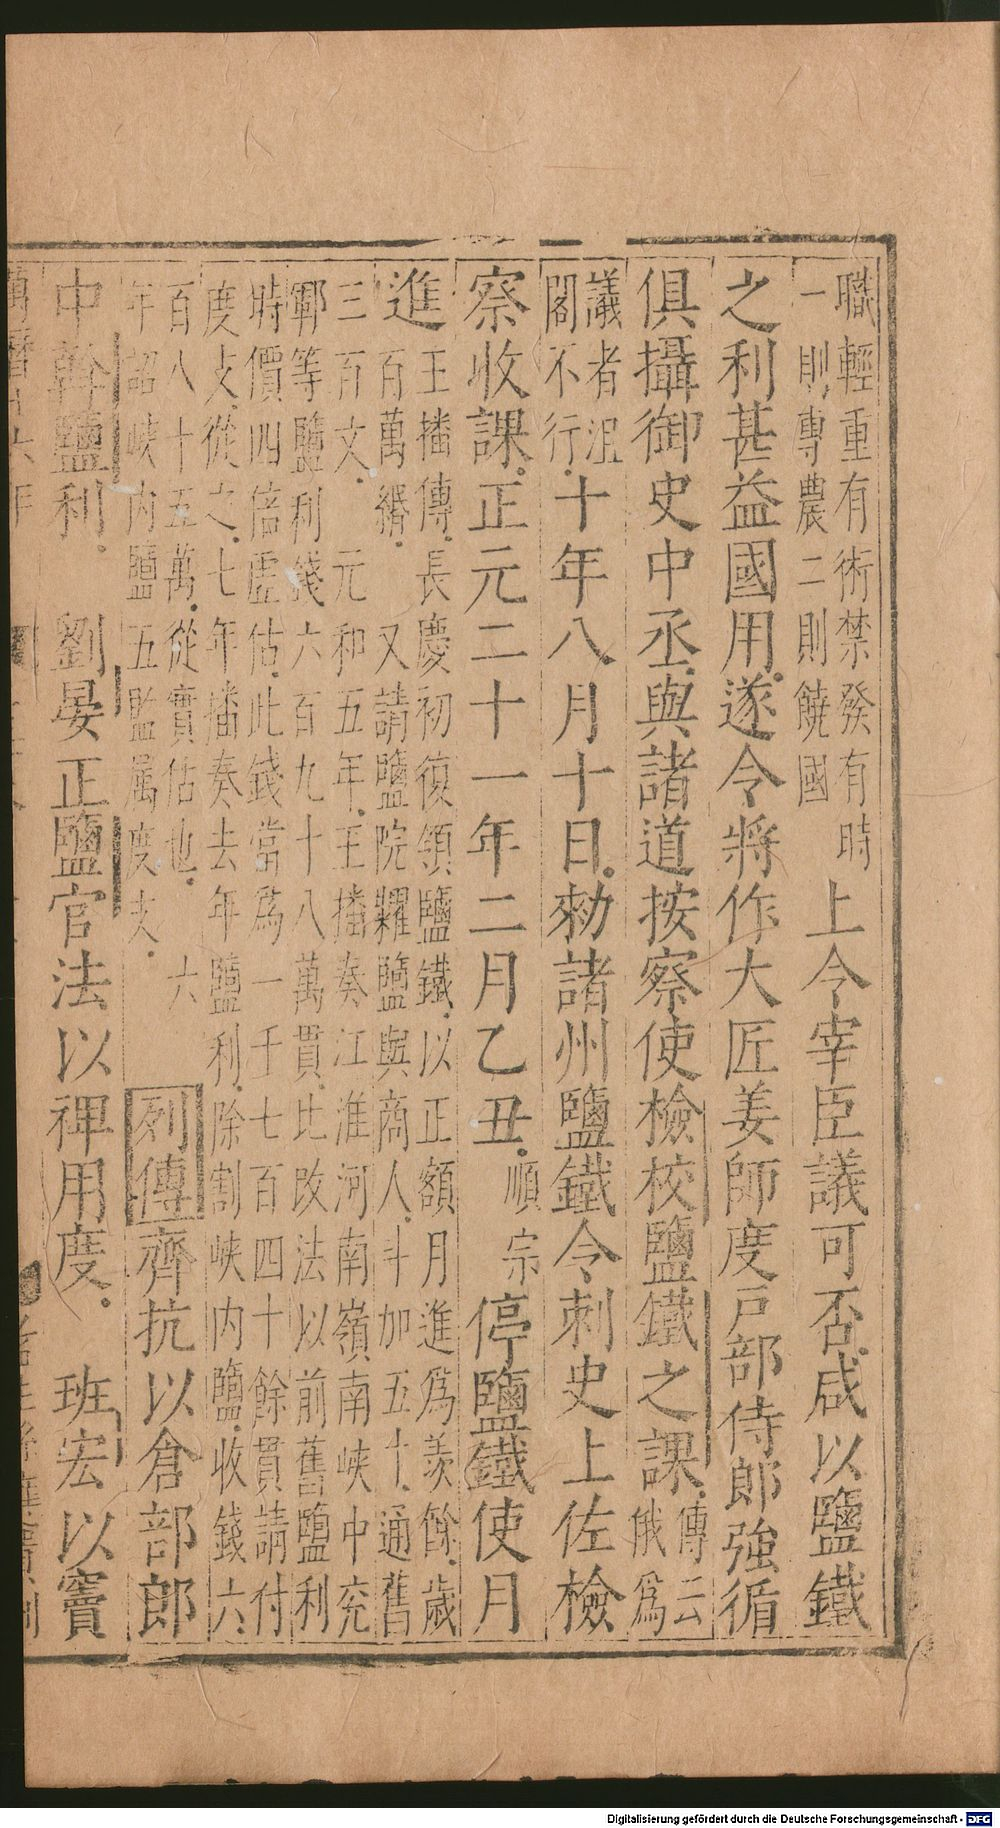 職輕重有術禁發有時
一則專農二則饒國
上令宰臣議可否咸以鹽鐵
之利甚益國用遂令將作大匠姜師度戸部侍郎強循
俱攝御史中丞與諸道按察使檢校鹽鐵之課
傳云
俄爲
議者沮
閣不行
十年八月十日勑諸州鹽鐵令刺史上佐檢
察收課正元二十一年二月乙丑
順
宗
停鹽鐵使月
進
王播傳長慶初復領鹽鐵以正額月進爲羨餘歳
百萬緡又請鹽院糶鹽與商人斗加五十通舊
三百文元和五年王播奏江淮河南嶺南峽中兖
鄆等鹽利錢六百九十八萬貫比改法以前舊鹽利
時價四倍虛估此錢當爲一千七百四十餘貫請付
度支從之七年播奏去年鹽利除割峽内鹽收錢六
百八十五萬從實估也六
年詔峽内鹽五監属度支
列傳齊抗以倉部郎
中幹鹽利劉晏正鹽官法以裨用度班宏以竇
Digitalisierung gefördert durch die Deutsche Forschungsgemeinschaft - DFG